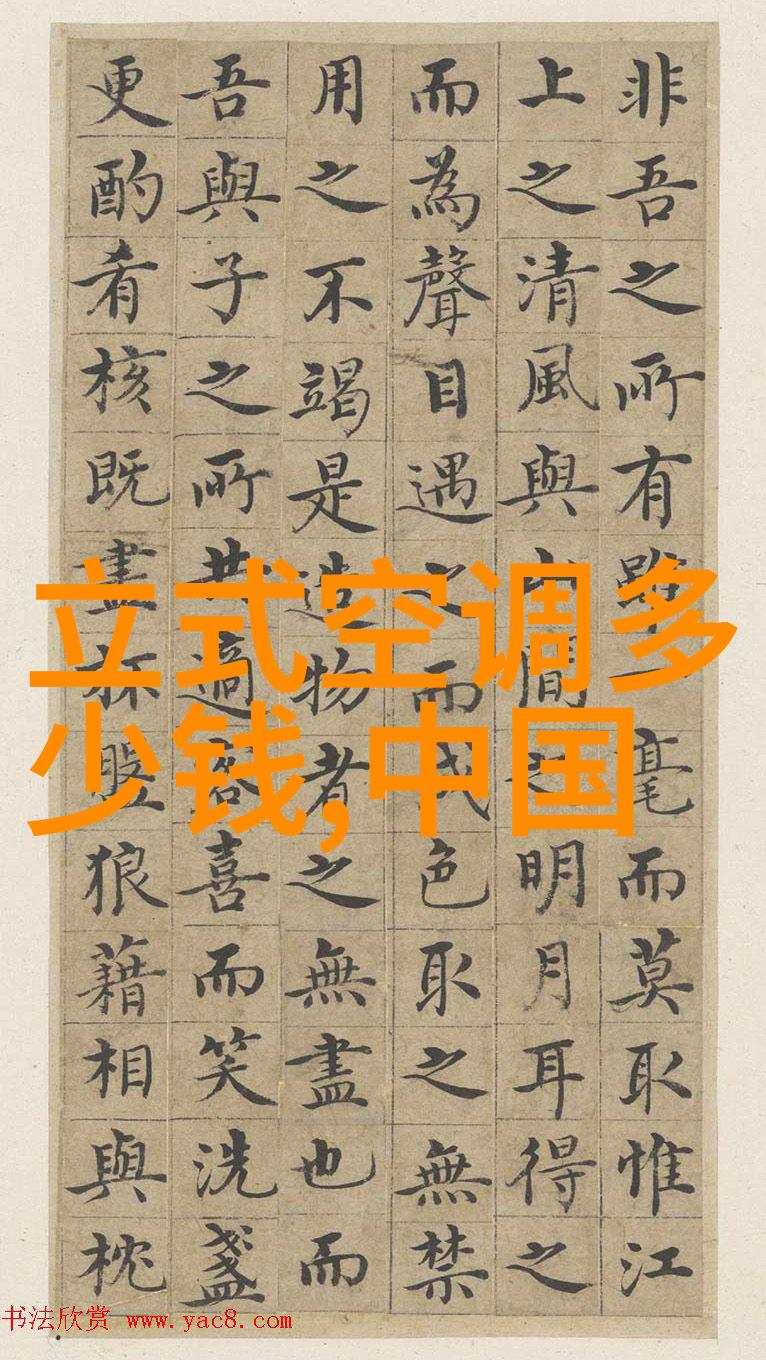 非吾之所有雖一毫而莫取惟江
上之清風與山間之明月耳得之
而為聲目遇之而成色取之無禁
用之不竭是造物者之無盡也而
吾與子之所共適客喜而笑洗盞
更酌肴核既盡杯盤狼藉相與枕
立式空调多
少钱,中国
书法欣赏 www.yac8.com